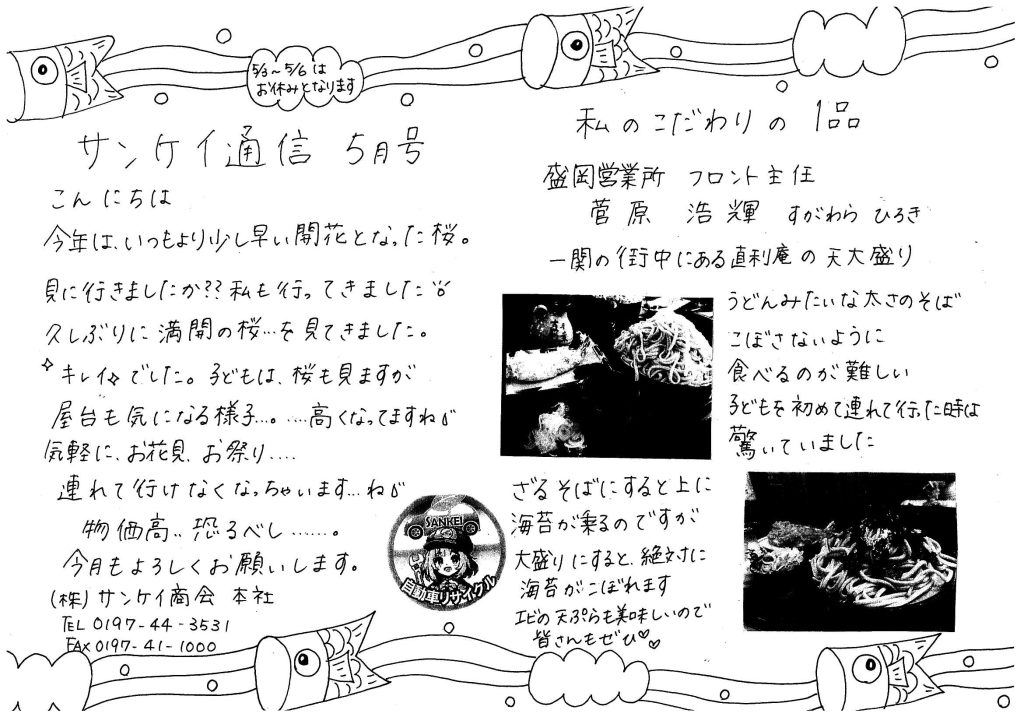 5/3～5/6は
お休みとなります
サンケイ通信 5月号
こんにちは
今年は、いつもより少し早い開花となった桜。
見に行きましたか??私も行ってきました
久しぶりに満開の桜…を見てきました。
キレイでした。子どもは、桜も見ますが
屋台も気になる様子…。…高くなってますね
気軽に、お花見、お祭り….
連れて行けなくなっちゃいます…ね
物価高..恐るべし……。
今月もよろしくお願いします。
(株)サンケイ商会 本社
TEL 0197-44-3531
FAX 0197-41-1000
SANKEI
自動車リサイクル
私のこだわりの 1品
盛岡営業所 フロント主任
菅原 浩輝 すがわら ひろき
一関の街中にある直利庵の天大盛り
うどんみたいな太さのそば
こぼさないように
食べるのが難しい
子どもを初めて連れて行った時は
驚いていました
ざるそばにすると上に
海苔が乗るのですが
大盛りにすると、絶対に
海苔がこぼれます
エビの天ぷらも美味しいので
皆さんもぜひ♡♡